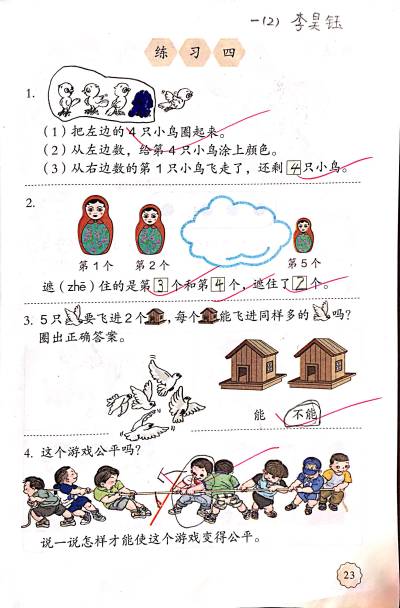 一(2) 李昊钰
练 习 四
1.
(1)把左边的4只小鸟圈起来。
(2)从左边数,给第4只小鸟涂上颜色。
(3)从右边数的第1只小鸟飞走了,还剩4只小鸟。
2.
第1个 第2个 第5个
遮(zhē)住的是第3个和第4个,遮住了2个。
3. 5只要飞进2个,每个能飞进同样多的吗?
圈出正确答案。
能 不能
4. 这个游戏公平吗?
说一说怎样才能使这个游戏变得公平。
23